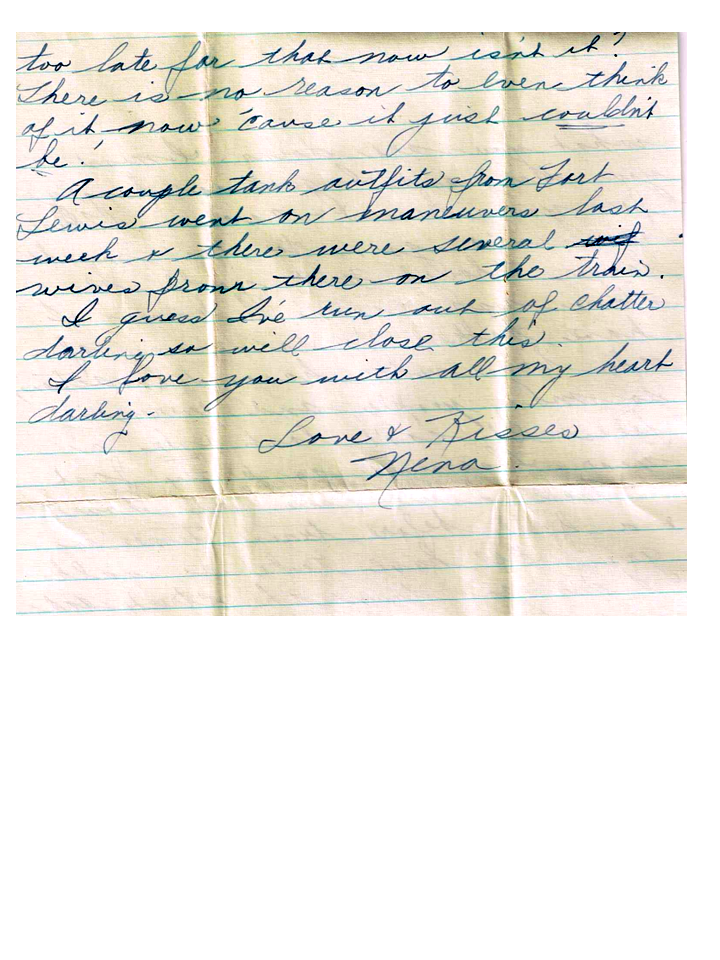 too late for that now isn't it?
There is no reason to even think
of it now 'cause it just couldn't
be!
A couple tank outfits from Fort
Lewis went on maneuvers last
week & there were several wif
wives from there on the train.
I guess I've run out of chatter
darling so will close this.
I love you with all my heart
darling -
Love & Kisses
Nena.